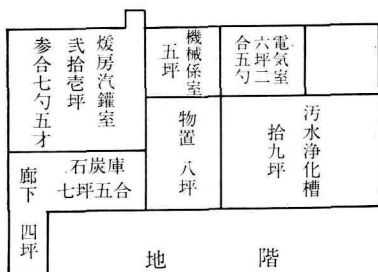 煖房汽鑵室
弐拾壱坪
参合七勺五才
機械係室
五坪
電気室
六坪二
合五勺
物置 八坪
汚水浄化槽
拾九坪
石炭庫
七坪五合
廊下 四坪
地階